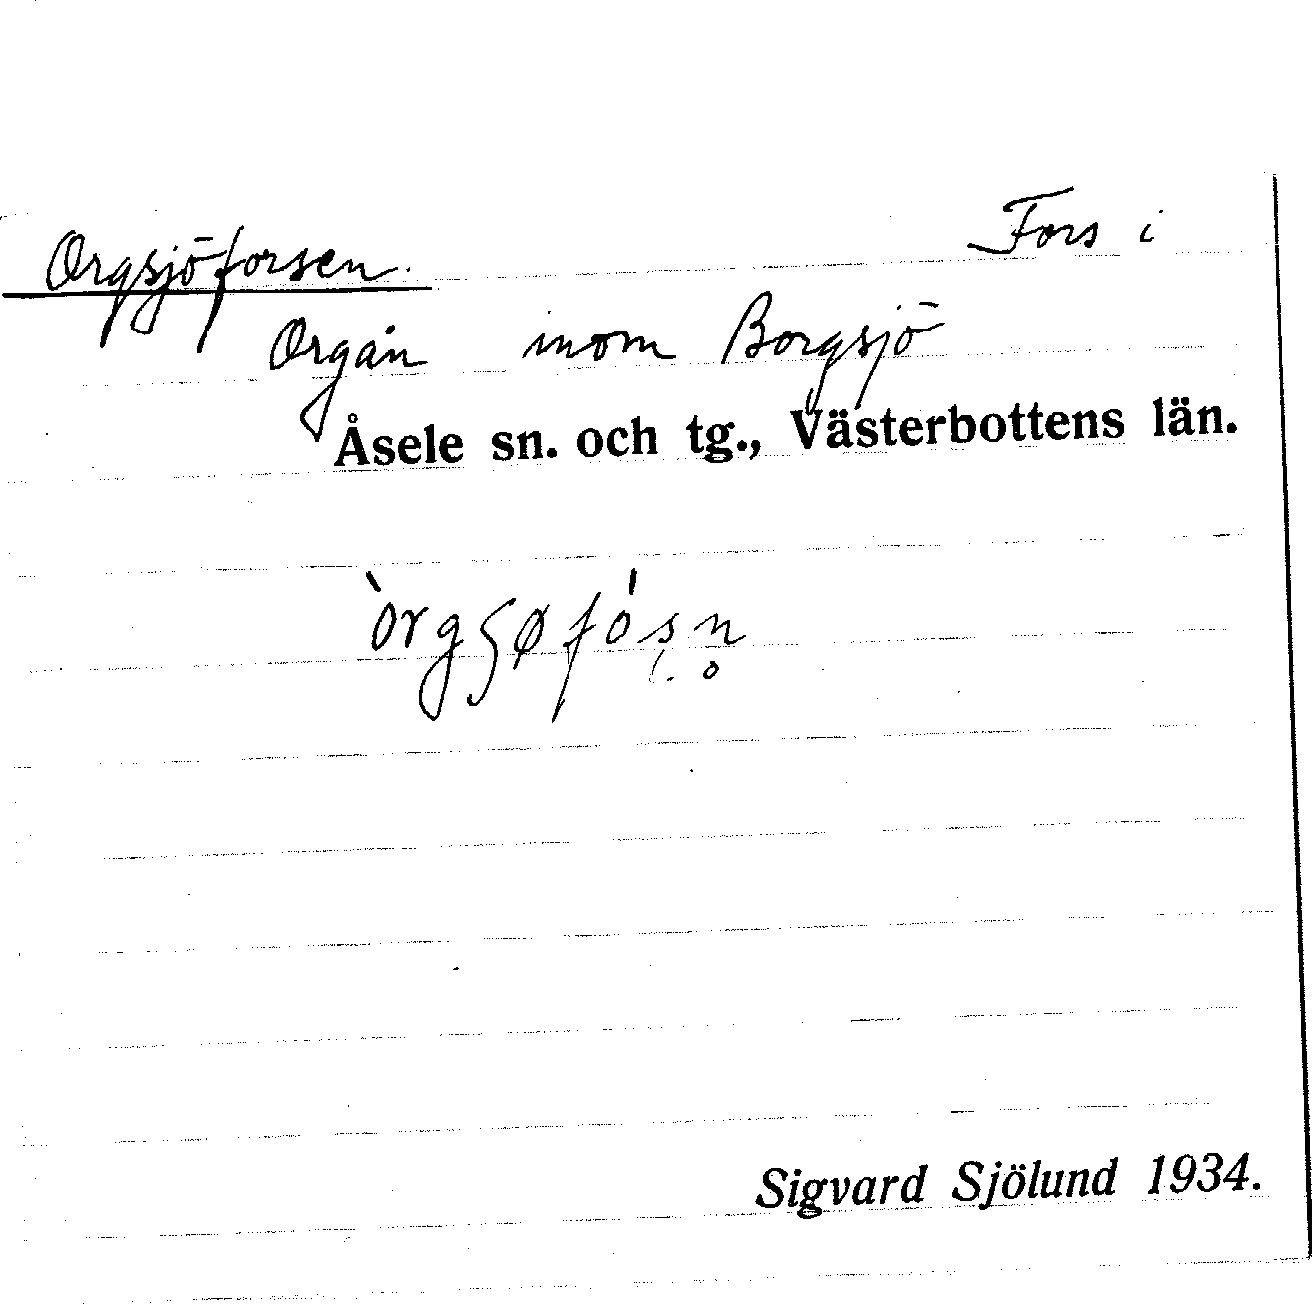 Orgsjöforsen. Fors i
Orgån inom Borgsjö
Åsele sn. och tg., Västerbottens län.
òrgʂøfóʂn̥
Sigvard Sjölund 1934.